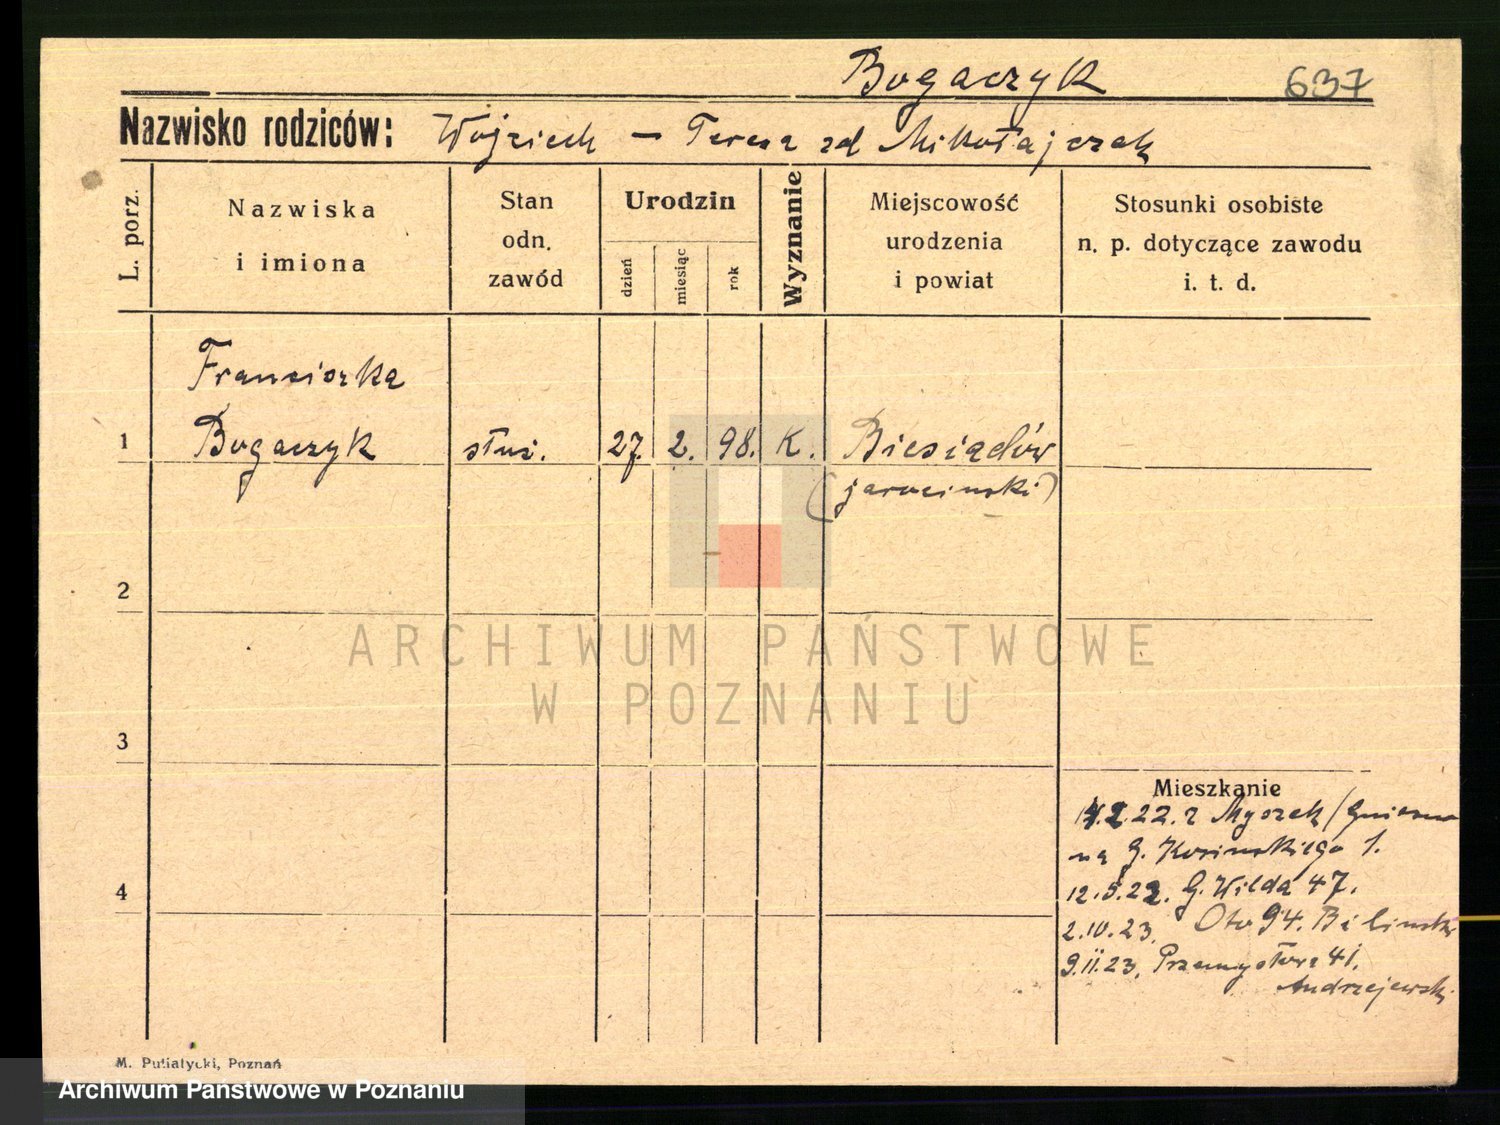 Bogaczyk 637
Nazwisko rodziców: Wojciech – Teresa zd Mikołajczak
L. porz.
Nazwiska
i imiona
Stan
odn.
zawód
Urodzin
dzień
miesiąc
rok
Wyznanie
Miejscowość
urodzenia
i powiat
Stosunki osobiste
n. p. dotyczące zawodu
i. t. d.
Franciszka
1 Bogaczyk służ. 27. 2. 98. K. Biesiadów
(jarociński)
2
3
4
Mieszkanie
22. z Myszek / Gniezno
na G. Kosińskiego 1.
12.5.22. G. Wilda 47.
2.10.23. 94. Biliński
9.11.23. Przemysłowa 41.
Andrzejewski
M. Putiatycki, Poznań
ARCHIWUM PAŃSTWOWE
W POZNANIU
Archiwum Państwowe w Poznaniu